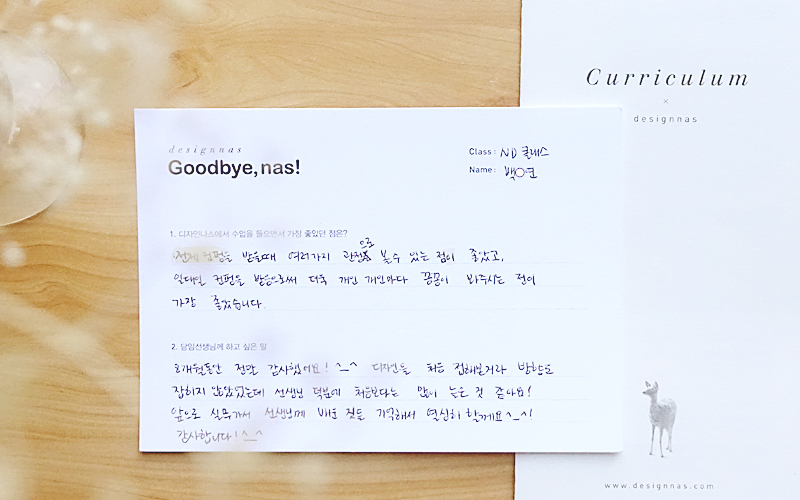 Curriculum
×
designnas
designnas
Goodbye, nas!
Class: ND 클래스
Name: 백○연
1. 디자인나스에서 수업을 들으면서 가장 좋았던 점은?
으로
전체 컨펌을 받을때 여러가지 관점 볼수 있는 점이 좋았고,
일대일 컨펌을 받음으로써 더욱 개인 개인마다 꼼꼼이 봐주시는 점이
가장 좋았습니다.
2. 담임선생님께 하고 싶은 말
3개월동안 정말 감사했어요! ^_^ 디자인을 처음 접해본거라 방향도
잡히지 않았었는데 선생님 덕분에 처음보다는 많이 는 것 같아요!
앞으로 실무가서 선생님께 배운 것들 기억해서 열심히 할게요^_^!
감사합니다!^_^
www.designnas.com